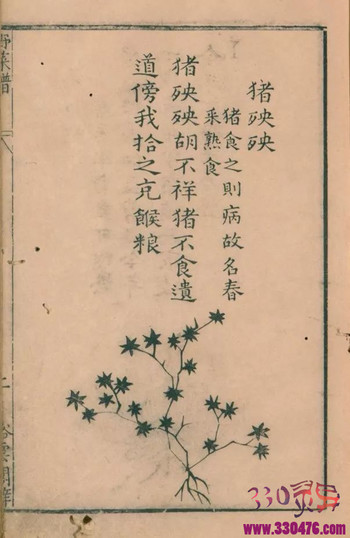 猪殃殃
猪食之則病故名春
采熟食
猪殃殃胡不祥猪不食遺
道傍我拾之充餱粮
野菜譜
330
www.330476.com